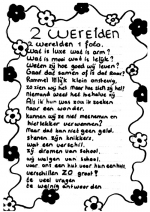 2 werelden
2 werelden 1 foto.
Wat is luxe wat is arm?
Wat is mooi wat is lelijk?
Weten zij hoe goed wij leven?
Gaat dat samen of is dat
Rommel lijkt klein omhoog,
zo zien wij het maar hoe zien zij het?
Niemand weet het behalve zij
Als ik hun was zou ik zoeken
naar een wonder.
kunnen wij ze niet meenemen en
hier lekker verwennen?
Maar dat kan niet geen geld.
stenen zijn knikkers,
wat een verschil.
Zij dromen van school,
wij walgen van school.
voor ons een huis voor hun een hut
verschillen ZO groot!
te veel vragen
te weinig antwoorden